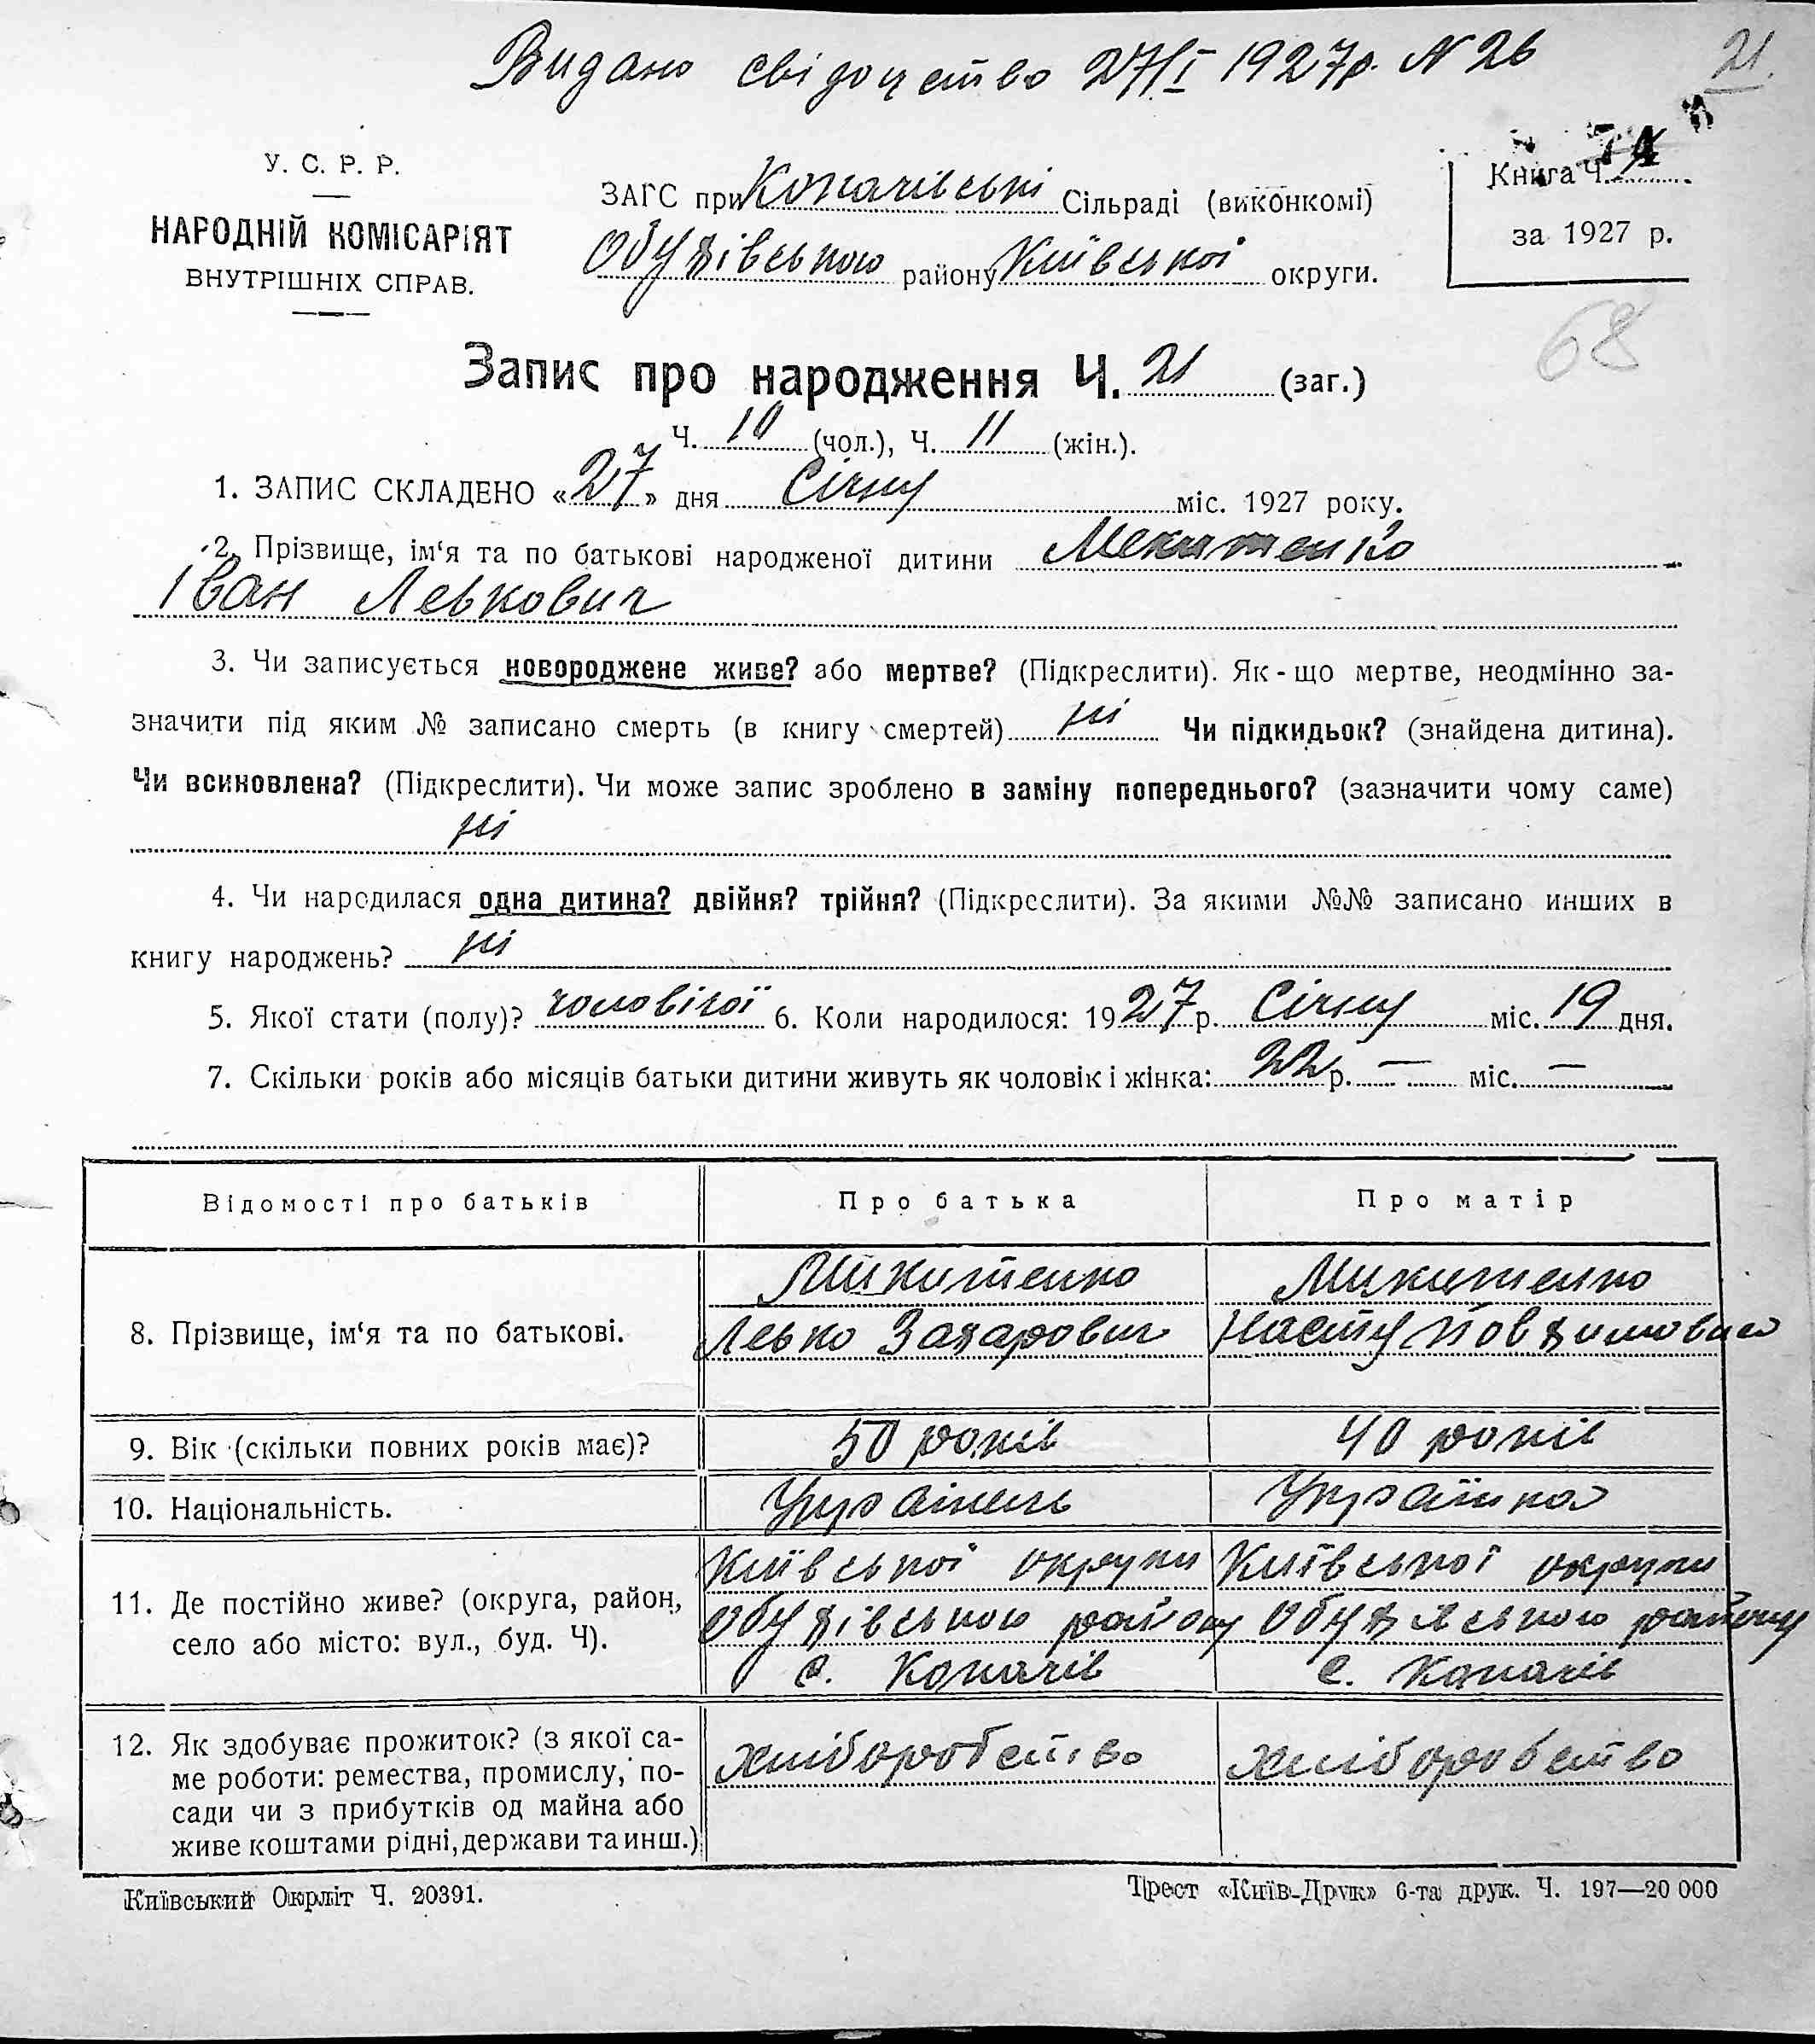 Видано свідоцтво 27/I 1927р. N 26
21.
У. С. Р. Р.
НАРОДНІЙ КОМІСАРІЯТ
ВНУТРІШНІХ СПРАВ.
ЗАГС при Копачівські Сільраді (виконкомі)
Обухівського району Київської округи.
Книга Ч.
за 1927 р.
68
Запис про народження Ч. 21 (заг.)
Ч. 10 (чол.), Ч. 11 (жін.).
1. ЗАПИС СКЛАДЕНО «27» дня Січну міс. 1927 року.
2. Прізвище, ім‘я та по батькові народженої дитини Мекитенко
Іван Левкович
3. Чи записується новороджене живе? або мертве? (Підкреслити). Як-що мертве, неодмінно за-
значити під яким № записано смерть (в книгу смертей) ні Чи підкидьок? (знайдена дитина).
Чи всиновлена? (Підкреслити). Чи може запис зроблено в заміну попереднього? (зазначити чому саме)
ні
4. Чи народилася одна дитина? двійня? трійня? (Підкреслити). За якими №№ записано инших в
книгу народжень? ні
5. Якої стати (полу)? чоловічої 6. Коли народилося: 1927 р. Січну міс. 19 дня.
7. Скільки років або місяців батьки дитини живуть як чоловік і жінка: 22 р. — міс. —
Відомості про батьків Про батька Про матір
Микитенко Микитенко
8. Прізвище, ім‘я та по батькові. Левко Захарович Насту Йовхимовна
9. Вік (скільки повних років має)? 50 років 40 років
10. Національність. Українець Українка
Київської округи Київської округи
11. Де постійно живе? (округа, район, Обухівського району Обухівського району
село або місто: вул., буд. Ч). с. Копачів с. Копачів
12. Як здобуває прожиток? (з якої са- хліборобство хліборобство
ме роботи: ремества, промислу, по-
сади чи з прибутків од майна або
живе коштами рідні, держави та инш.)
Київський Окрліт Ч. 20391.
Трест «Київ-Друк» 6-та друк. Ч. 197—20 000